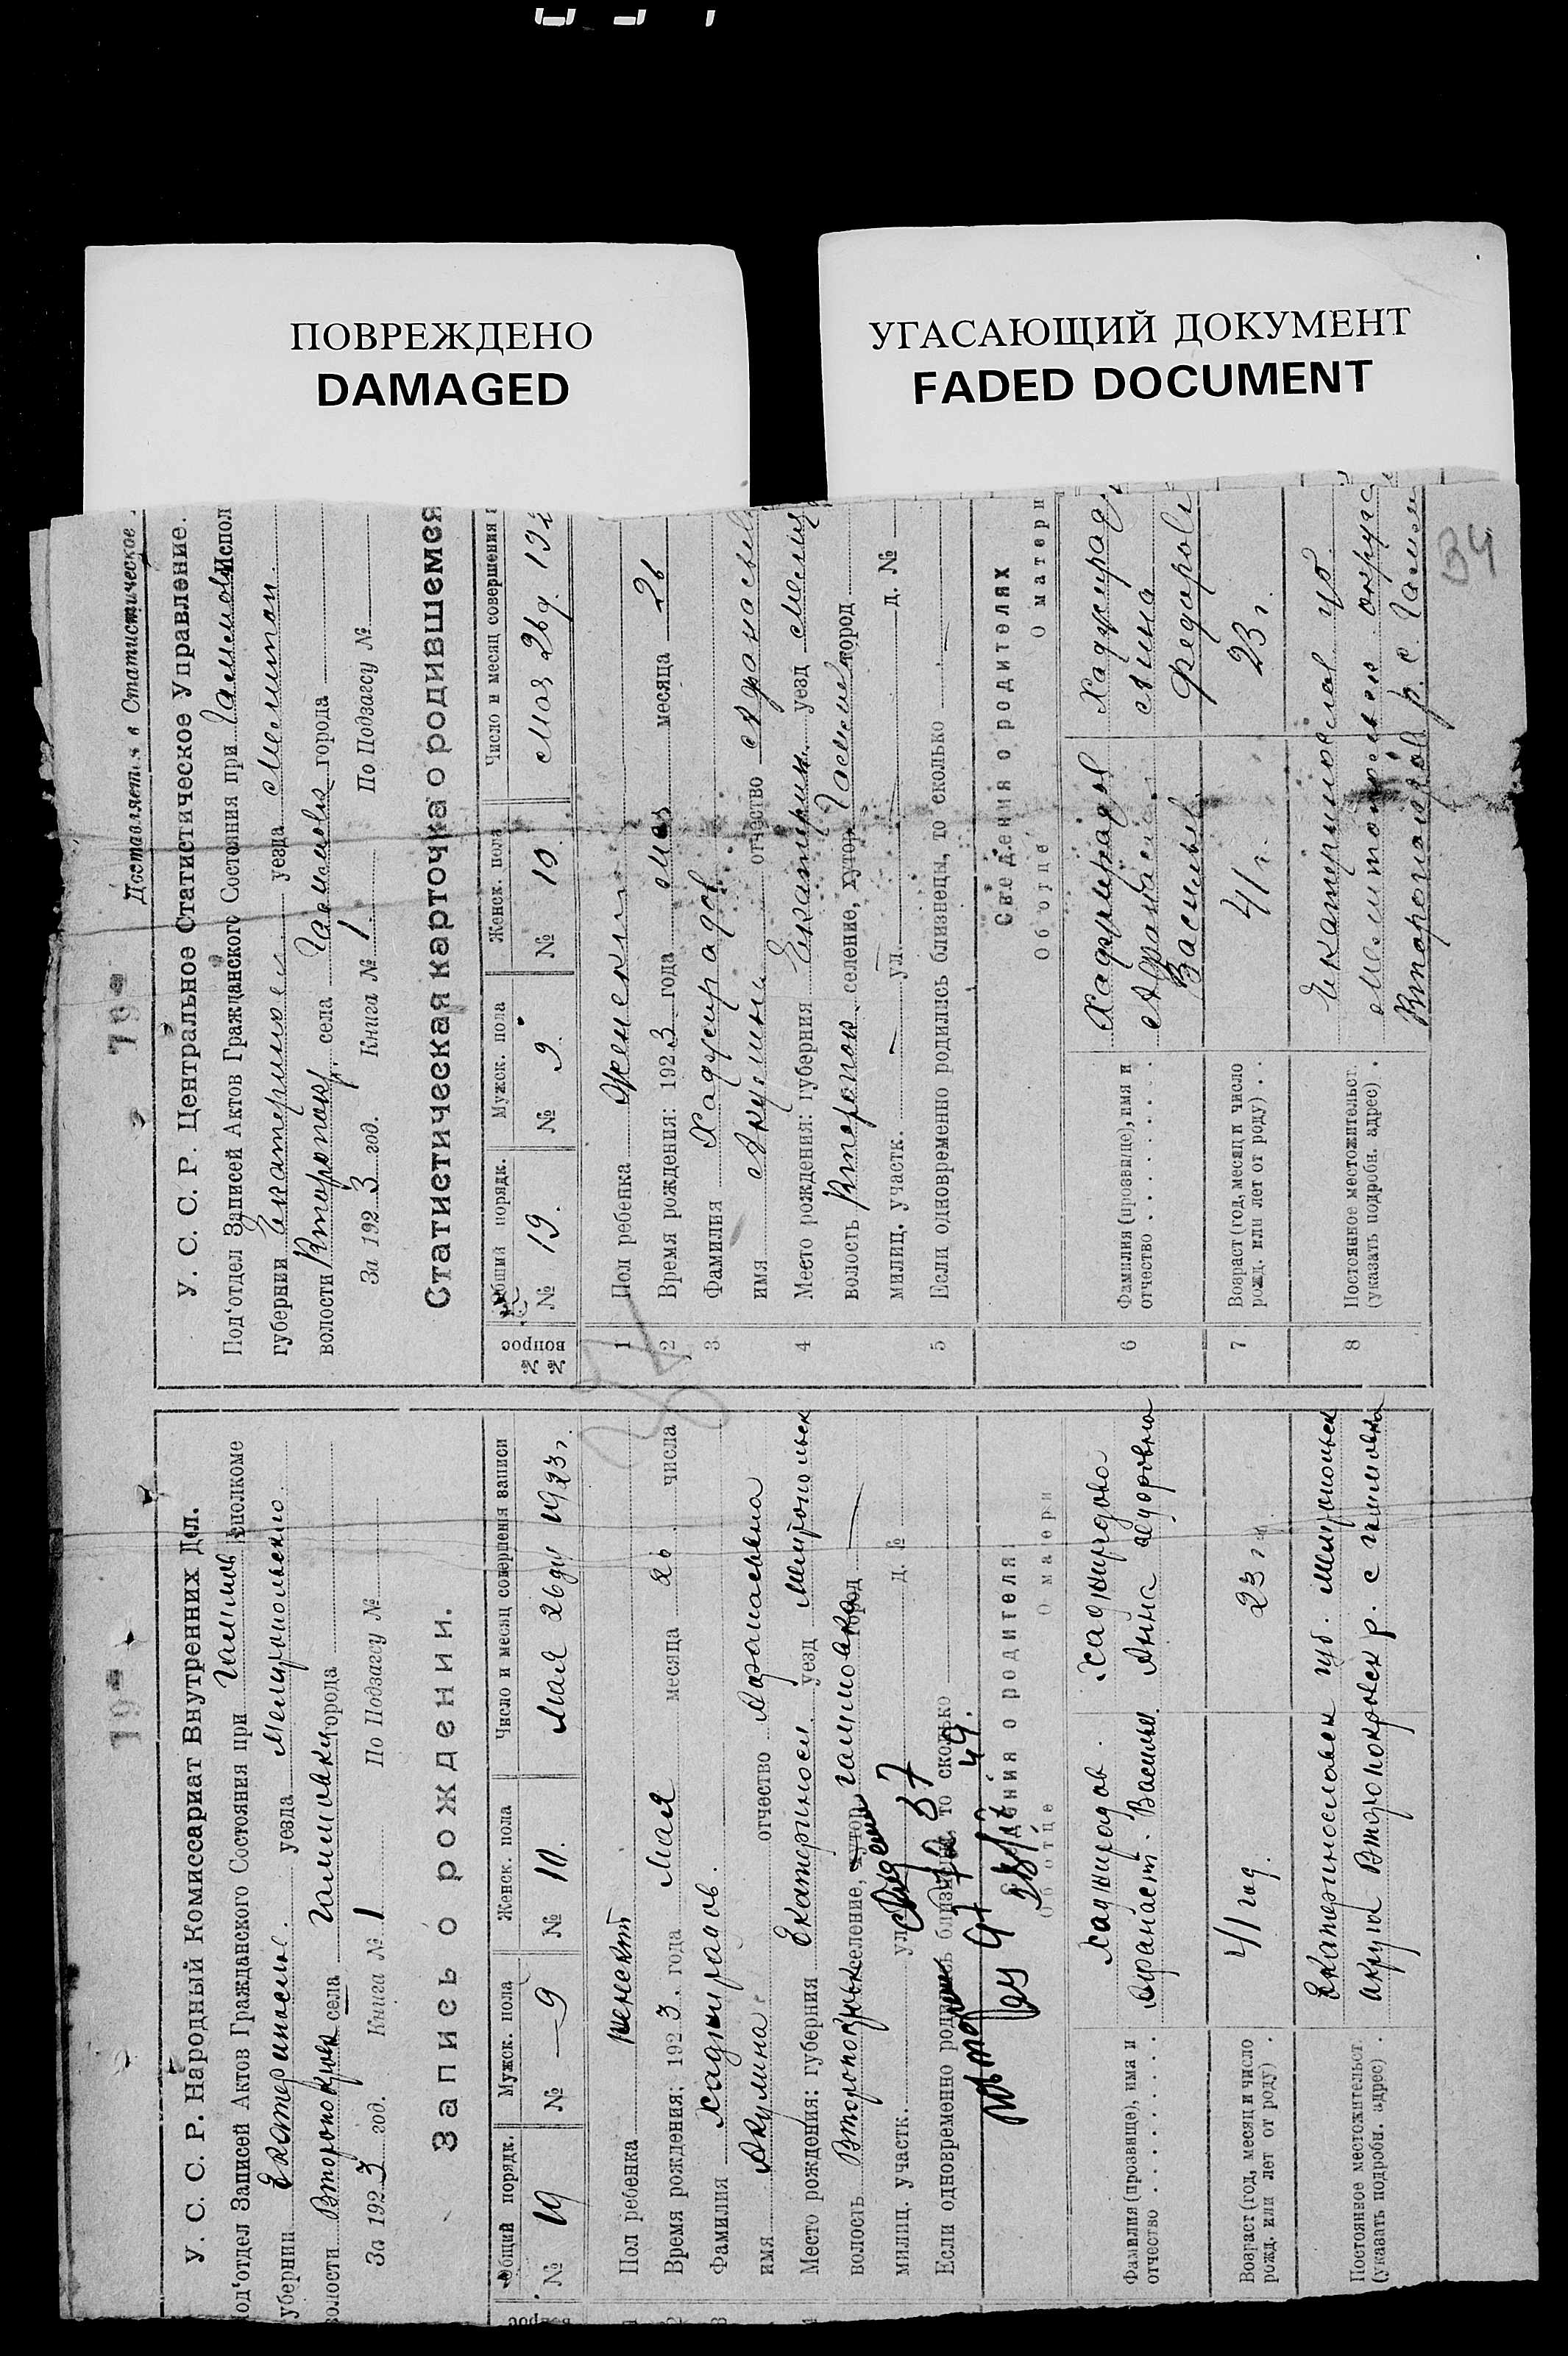 ПОВРЕЖДЕНО
DAMAGED
УГАСАЮЩИЙ ДОКУМЕНТ
FADED DOCUMENT
79
У. С. С. Р. Народный Комиссариат Внутренних Дел.
од'отдел Записей Актов Гражданского Состояния при Гаммов исполкоме
убернии Екатеринослав. уезда Мелитопольского
олости Второпокров села Гаммовки города
За 1923 год. Книга № 1 По Подзагсу №
Запись о рождении.
Общий порядк. Мужск. пола Женск. пола Число и месяц совершения записи
№ 19 № — 9 № 10. Мая 26 дня 1923 г.
Пол ребенка женский
Время рождения: 1923 года Мая месяца 26 числа
Фамилия Хаджирадов.
имя Акулина отчество Афанасьевна
Место рождения: губерния Екатеринослав. уезд Мелитопольск
волость Второпокровск селение, хутор Гаммовка город
милиц. участк. ул. д. №
Если одновременно родились близнецы, то сколько
Сведения о родителях:
Об отце О матери
Фамилия (прозвище), имя и отчество Хаджирадов. Хаджирадова
Афанасий. Васильев. Анна Федоровна
Возраст (год, месяц и число рожд. или лет от роду) 41 год. 23 г.
Постоянное местожительст. (указать подробн. адрес) Екатеринославск губ. Мелитопольск
округа Второпокровск р. с Гаммовка
Доставляется в Статистическое
79
У. С. С. Р. Центральное Статистическое Управление.
Под'отдел Записей Актов Гражданского Состояния при Гаммов Испол
губернии Екатеринослав уезда Мелитоп.
волости Второпокр. села Гаммовка города
За 1923 год. Книга № 1 По Подзагсу №
Статистическая карточка о родившемся
№№ вопрос Общий порядк. Мужск. пола Женск. пола Число и месяц совершения
№ 19. № 9. № 10. Мая 26 д. 192
1 Пол ребенка Женский
2 Время рождения: 1923 года Мая месяца 26
3 Фамилия Хаджирадов
имя Акулина отчество Афанасьев
4 Место рождения: губерния Екатерин. уезд Мелит
волость Второпок селение, хутор Гаммов город
милиц. участк. ул. д. №
5 Если одновременно родились близнецы, то сколько
Сведения о родителях
Об отце О матери
6 Фамилия (прозвище), имя и отчество Хаджирадов Хаджирад
Афанасий Анна
Васильев. Федоров
7 Возраст (год, месяц и число рожд. или лет от роду) 41 г. 23 г.
8 Постоянное местожительст. (указать подробн. адрес) Екатеринослав губ.
Мелитопольск округа
Второпокров р. с. Гаммов
34